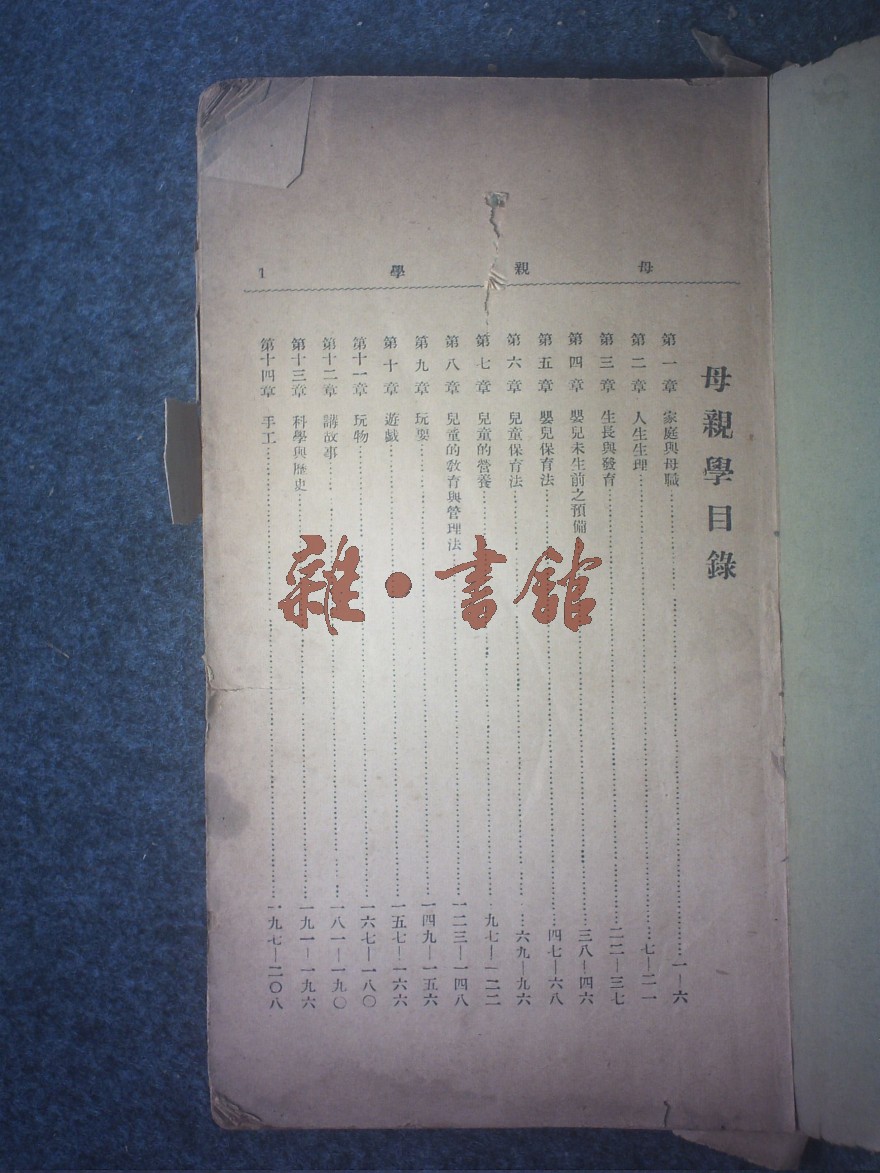 母親學 1
母親學目錄
第一章 家庭與母職…………一—六
第二章 人生生理…………七—二一
第三章 生長與發育…………二二—三七
第四章 嬰兒未生前之預備…………三八—四六
第五章 嬰兒保育法…………四七—六八
第六章 兒童保育法…………六九—九六
第七章 兒童的營養…………九七—一二二
第八章 兒童的教育與管理法…………一二三—一四八
第九章 玩耍…………一四九—一五六
第十章 遊戲…………一五七—一六六
第十一章 玩物…………一六七—一八〇
第十二章 講故事…………一八一—一九〇
第十三章 科學與歷史…………一九一—一九六
第十四章 手工…………一九七—二〇八
雜·書館